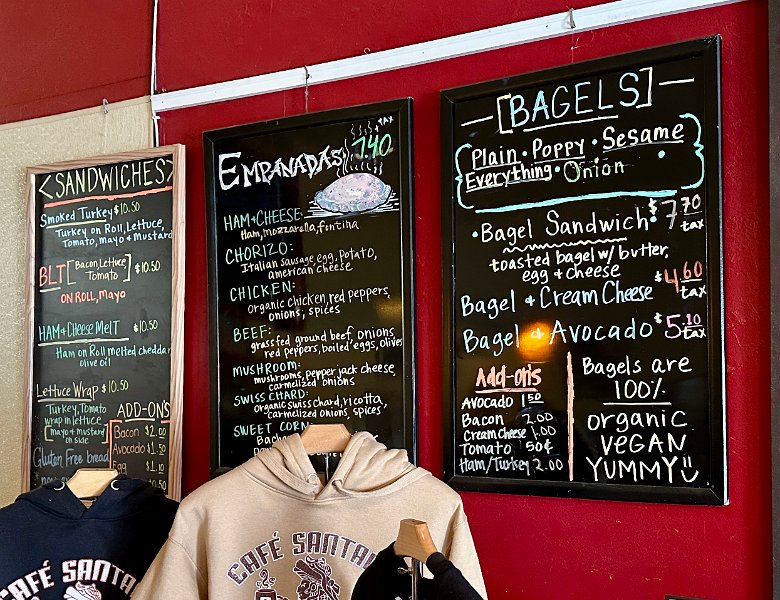 SANDWICHES
Smoked Turkey $10.50
Turkey on Roll, Lettuce,
Tomato, mayo & Mustard
BLT [Bacon, Lettuce
Tomato] $10.50
ON ROLL, MAYO
HAM & CHEESE MELT $10.50
Ham on Roll melted cheddar
olive oil
Lettuce Wrap $10.50
Turkey, Tomato
wrap in lettuce
mayo & mustard
on side
ADD-ON'S
Bacon $2.00
Avocado $1.50
Egg $1.10
Gluten Free bread
EMPANADAS 7.40
+TAX
HAM & CHEESE:
Ham, mozzarella, fontina
CHORIZO:
Italian sausage, egg, potato,
american cheese
CHICKEN:
organic chicken, red peppers,
onions, spices
BEEF:
grass fed ground beef, onions
red peppers, boiled eggs, olives
MUSHROOM:
mushrooms, pepper jack cheese,
carmelized onions
SWISS CHARD:
organic swiss chard, ricotta,
carmelized onions, spices
SWEET CORN
[BAGELS]
Plain • Poppy • Sesame
Everything • Onion •
• Bagel Sandwich $7.70
+tax
toasted bagel w/ butter,
egg & cheese
Bagel & Cream Cheese $4.60
+tax
Bagel & Avocado $5.10
+tax
Add-on's
Avocado 1.50
Bacon 2.00
Cream cheese 1.00
Tomato 50¢
Ham/Turkey 2.00
Bagels are
100%
organic
VEGAN
YUMMY
CAFÉ SANTA
CAFÉ SANTA